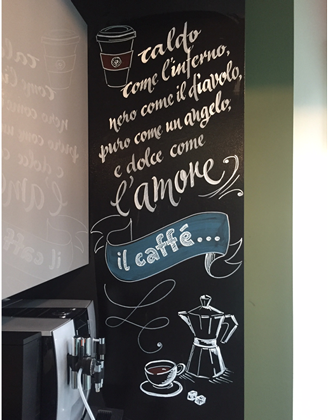 caldo
come l'inferno,
nero come il diavolo,
puro come un angelo,
e dolce come
l'amore
il caffé...